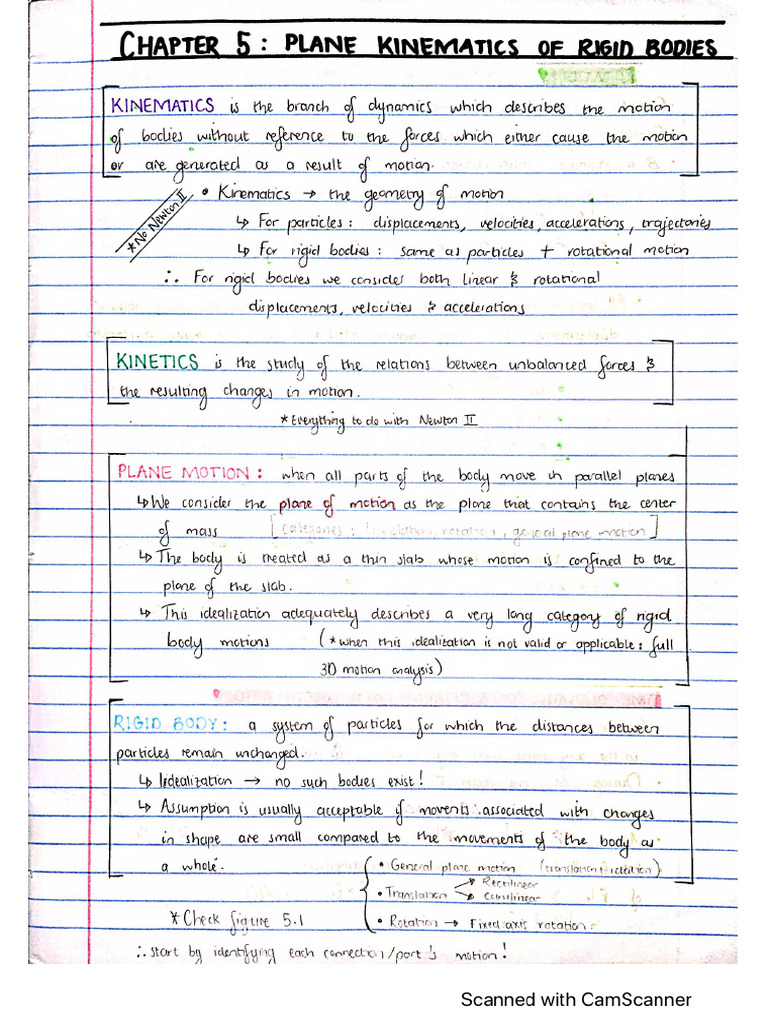 CHAPTER 5: PLANE KINEMATICS OF RIGID BODIES
KINEMATICS is the branch of dynamics which describes the motion
of bodies without reference to the forces which either cause the motion
or are generated as a result of motion.
* No Newton II
• Kinematics → the geometry of motion
↳ For particles: displacements, velocities, accelerations, trajectories
↳ For rigid bodies: same as particles + rotational motion
∴ For rigid bodies we consider both linear & rotational
displacements, velocities & accelerations
KINETICS is the study of the relations between unbalanced forces &
the resulting changes in motion.
* Everything to do with Newton II
PLANE MOTION: when all parts of the body move in parallel planes
↳ We consider the plane of motion as the plane that contains the center
of mass [categories: translation, rotation, general plane motion]
↳ The body is treated as a thin slab whose motion is confined to the
plane of the slab.
↳ This idealization adequately describes a very long category of rigid
body motions (*when this idealization is not valid or applicable: full
3D motion analysis)
RIGID BODY: a system of particles for which the distances between
particles remain unchanged.
↳ Idealization → no such bodies exist!
↳ Assumption is usually acceptable if movents associated with changes
in shape are small compared to the movements of the body as
a whole.
• General plane motion (translation+rotation)
• Translation → Rectilinear
→ Curvilinear
* Check figure 5.1
• Rotation → Fixed axis rotation
∴ start by identifying each connection/part's motion!
Scanned with CamScanner